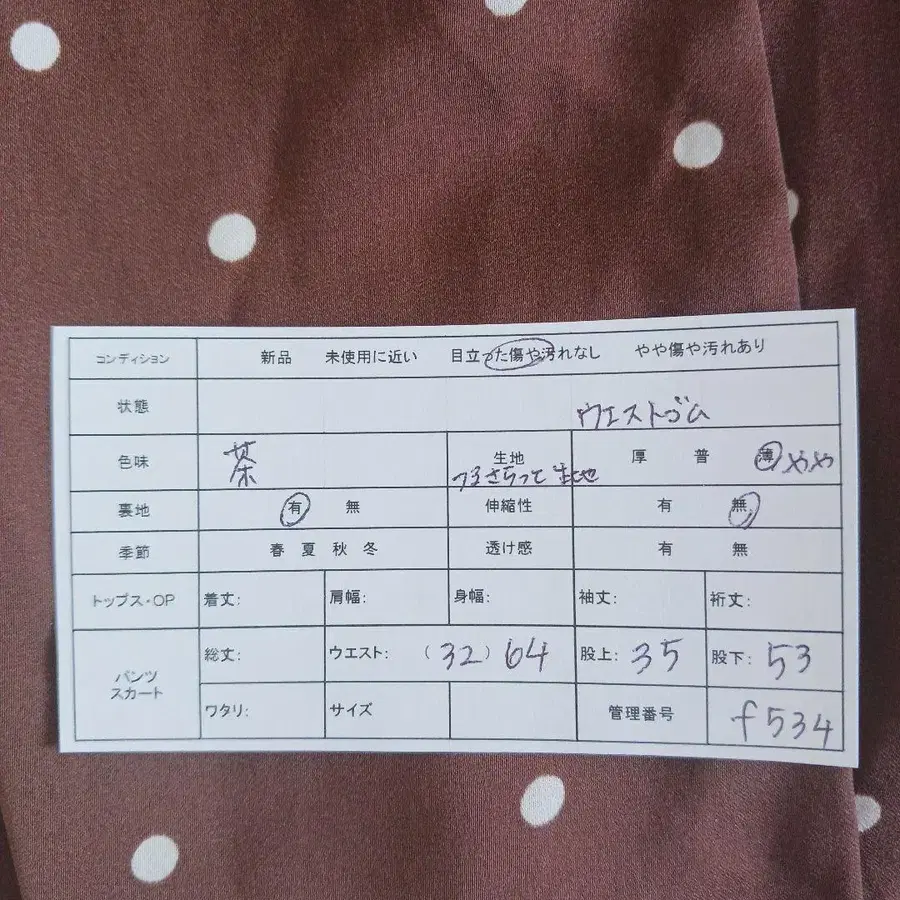 コンディション 新品 未使用に近い 目立った傷や汚れなし やや傷や汚れあり
状態 ウエストゴム
色味 茶 生地 つるさらっと生地 厚 普 薄 やや
裏地 有 無 伸縮性 有 無
季節 春 夏 秋 冬 透け感 有 無
トップス・OP 着丈: 肩幅: 身幅: 袖丈: 裄丈:
パンツ
スカート
総丈: ウエスト: (32) 64 股上: 35 股下: 53
ワタリ: サイズ 管理番号 f534